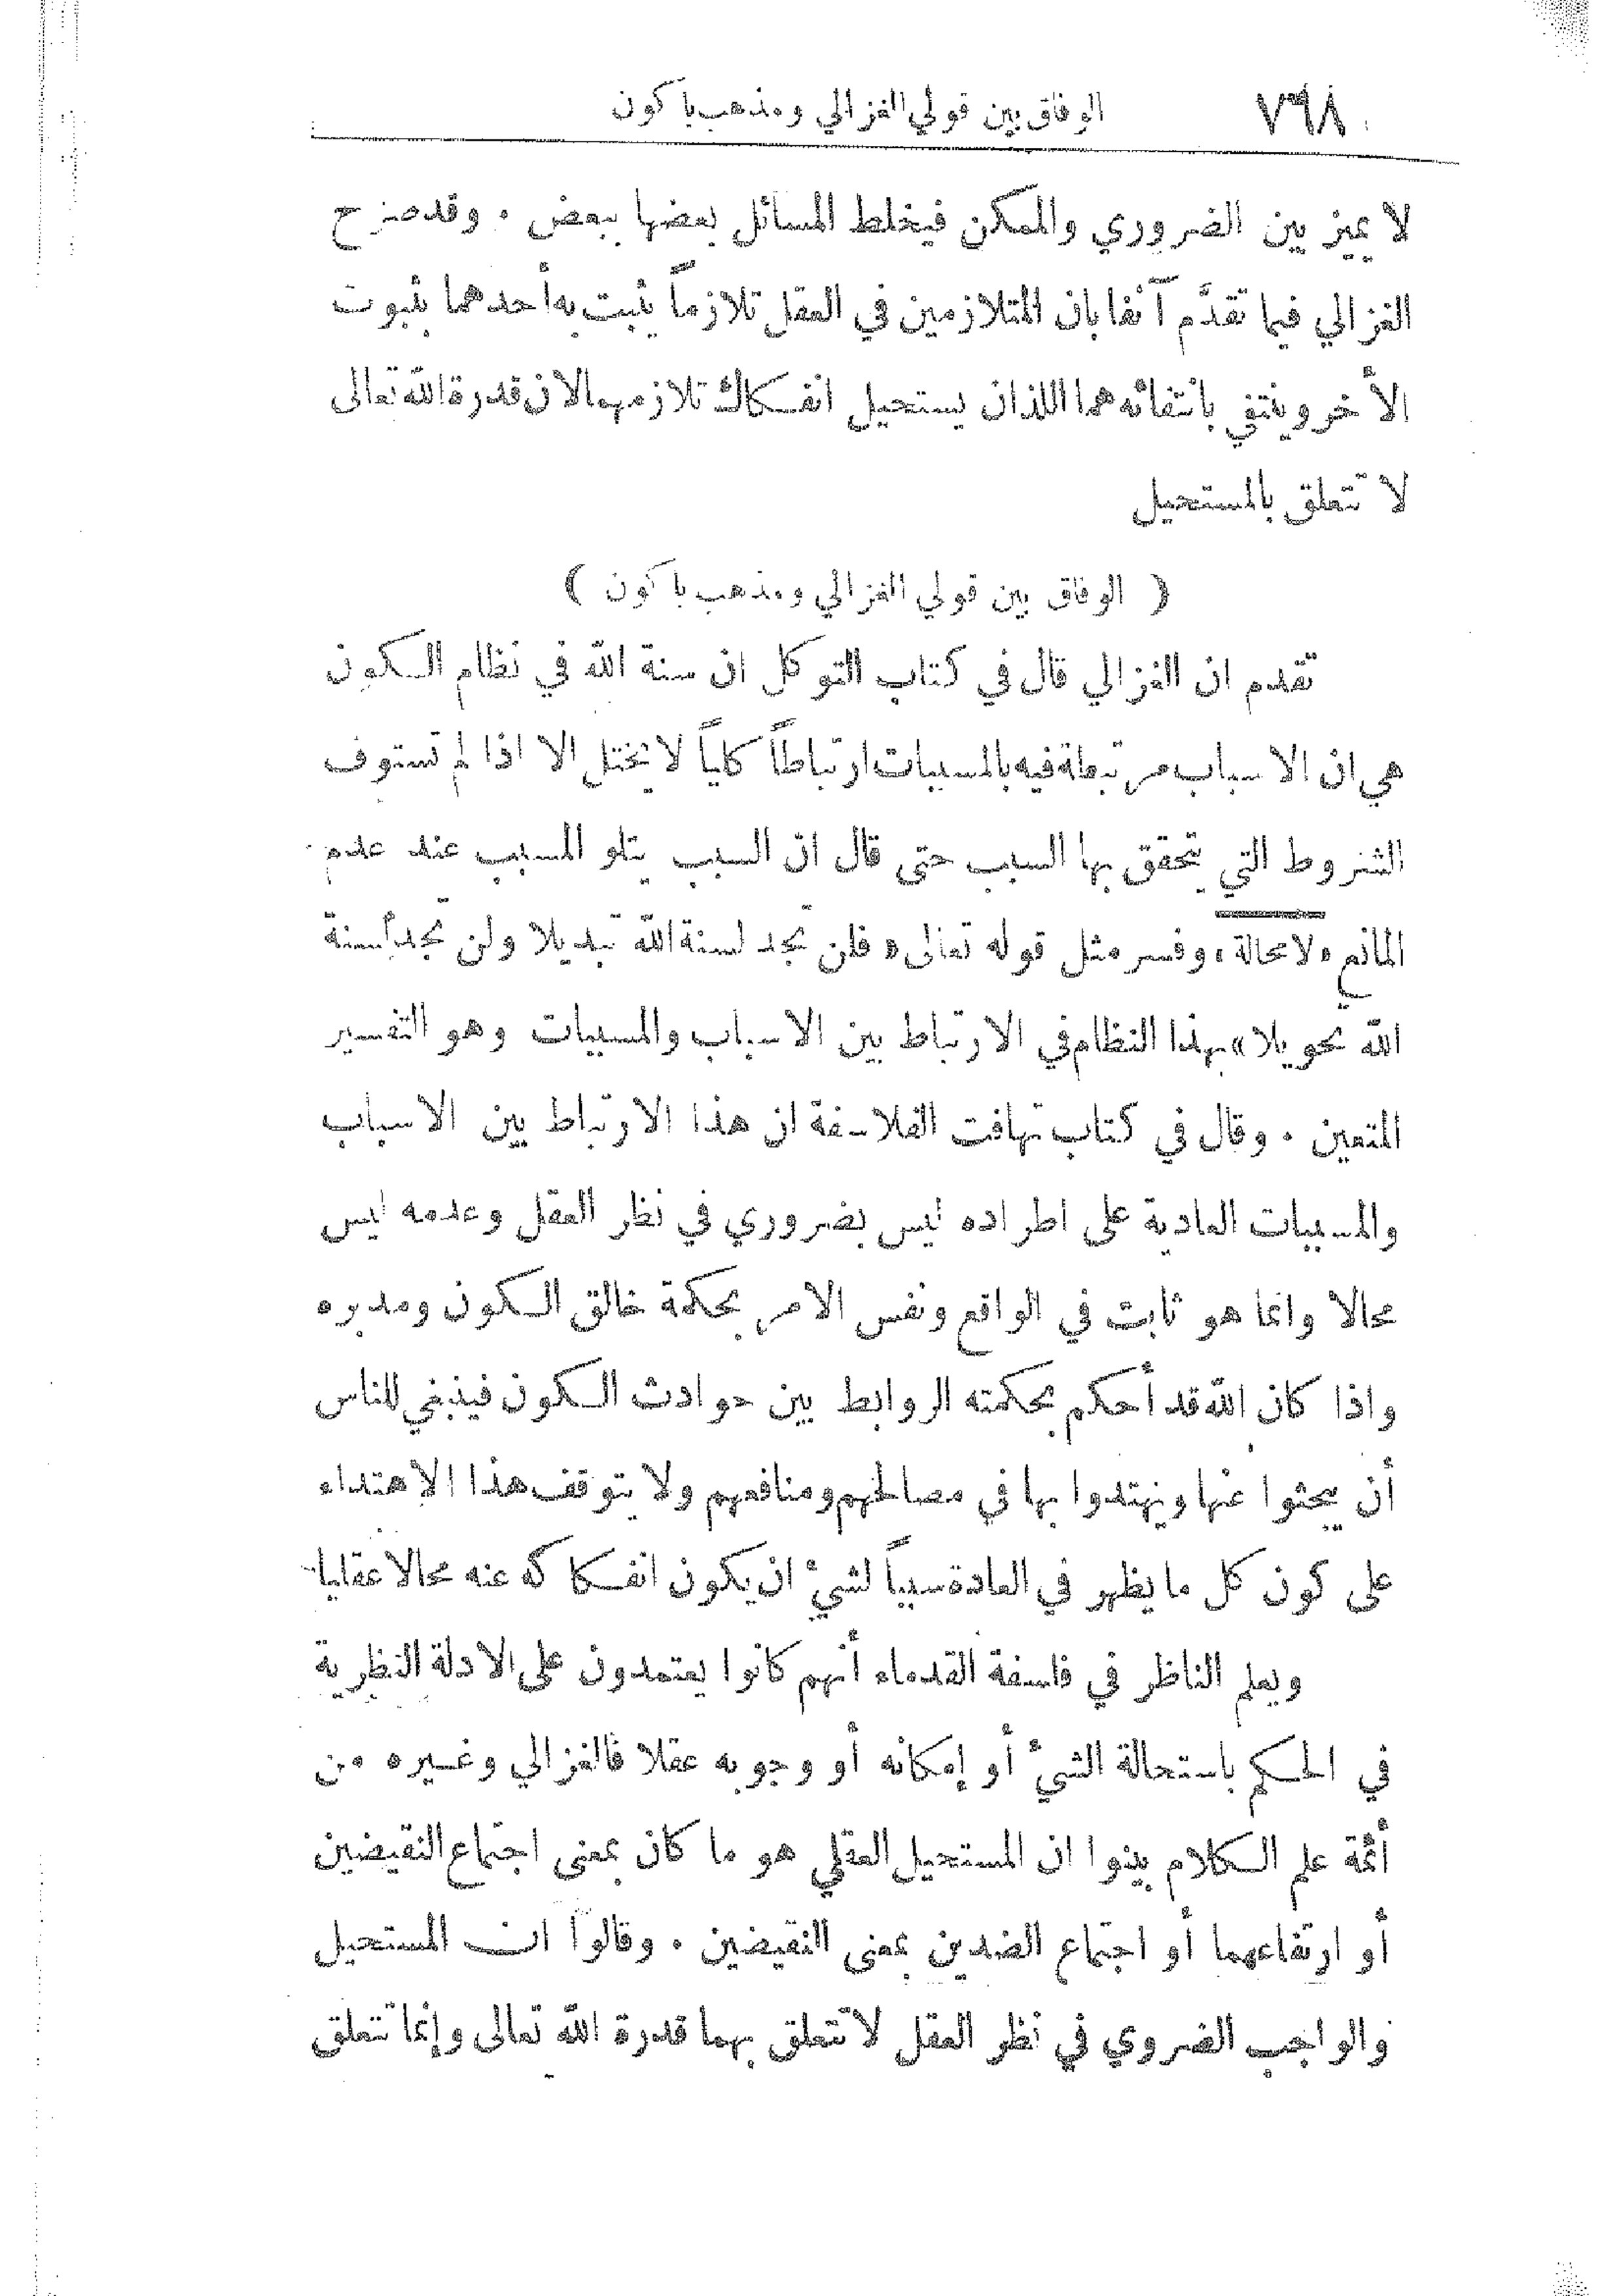 ٧٩٨ الوفاق بين قولي الغزالي ومذهب باكون
لا يميز بين الضروري والممكن فيخلط المسائل بعضها ببعض . وقد صرح
الغزالي فيما تقدَّم آنفا بان المتلازمين في العقل تلازماً يثبت به أحدهما بثبوت
الأخر وينتفي بانتفائه هما اللذان يستحيل انفكاك تلازمهما لان قدرة الله تعالى
لا تتعلق بالمستحيل
( الوفاق بين قولي الغزالي ومذهب باكون )
تقدم ان الغزالي قال في كتاب التوكل ان سنة الله في نظام الكون
هي ان الاسباب مرتبطة فيه بالمسببات ارتباطاً كلياً لا يختل الا اذا لم تستوف
الشروط التي يتحقق بها السبب حتى قال ان السبب يتلو المسبب عند عدم
المانع «لا محالة» وفسر مثل قوله تعالى «فلن تجد لسنة الله تبديلا ولن تجد لسنة
الله تحويلا» بهذا النظام في الارتباط بين الاسباب والمسببات وهو التفسير
المتعين . وقال في كتاب تهافت الفلاسفة ان هذا الارتباط بين الاسباب
والمسببات العادية على اطراده ليس بضروري في نظر العقل وعدمه ليس
محالا وانما هو ثابت في الواقع ونفس الامر بحكمة خالق الكون ومدبره
واذا كان الله قد أحكم بحكمته الروابط بين حوادث الكون فينبغي للناس
أن يبحثوا عنها ويهتدوا بها في مصالحهم ومنافعهم ولا يتوقف هذا الاهتداء
على كون كل ما يظهر في العادة سبباً لشيء ان يكون انفكاكه عنه محالا عقليا
ويعلم الناظر في فلسفة القدماء أنهم كانوا يعتمدون على الادلة النظرية
في الحكم باستحالة الشيء أو إمكانه أو وجوبه عقلا فالغزالي وغيره من
أئمة علم الكلام بينوا ان المستحيل العقلي هو ما كان بمعنى اجتماع النقيضين
أو ارتفاعهما أو اجتماع الضدين بمعنى النقيضين . وقالوا ان المستحيل
والواجب الضروي في نظر العقل لا تتعلق بهما قدرة الله تعالى وإنما تتعلق